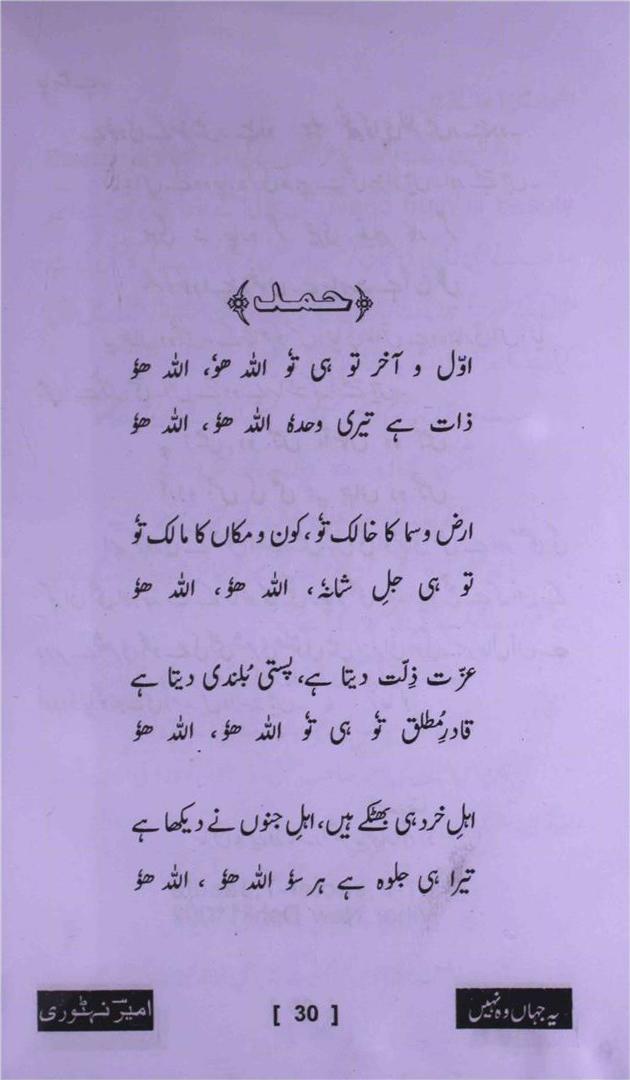 حمد
اوّل و آخر تو ہی تؤ اللہ ھؤ، اللہ ھؤ
ذات ہے تیری وحدہٗ اللہ ھؤ، اللہ ھؤ
ارض وسما کا خالک تؤ، کون و مکاں کا مالک تؤ
تو ہی جلِ شانہٗ، اللہ ھؤ، اللہ ھؤ
عزّت ذِلّت دیتا ہے، پستی بُلندی دیتا ہے
قادرِ مُطلق تؤ ہی تؤ اللہ ھؤ، اللہ ھؤ
اہلِ خرد ہی بھٹکے ہیں، اہلِ جنوں نے دیکھا ہے
تیرا ہی جلوہ ہے ہر سؤ اللہ ھؤ ، اللہ ھؤ
یہ جہاں وہ نہیں
[ 30 ]
امیرؔ نہٹوری